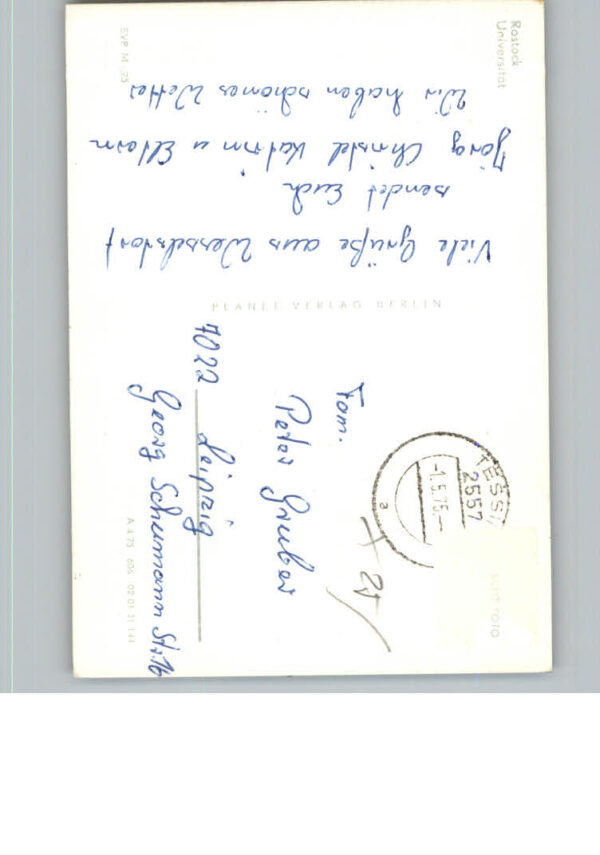 Rostock
Universität
Wir haben schönes Wetter
Jörg Christel Katrin u Eltern
sendet Euch
Viele Grüße aus Wesselstorf
EVP M -,25
PLANET-VERLAG BERLIN
Fam.
Peter Gruber
7022 Leipzig
Georg Schumann Str. 16
TESSI
2557
-1.5.75.-
a
A 4 75 606 02 01 31 144